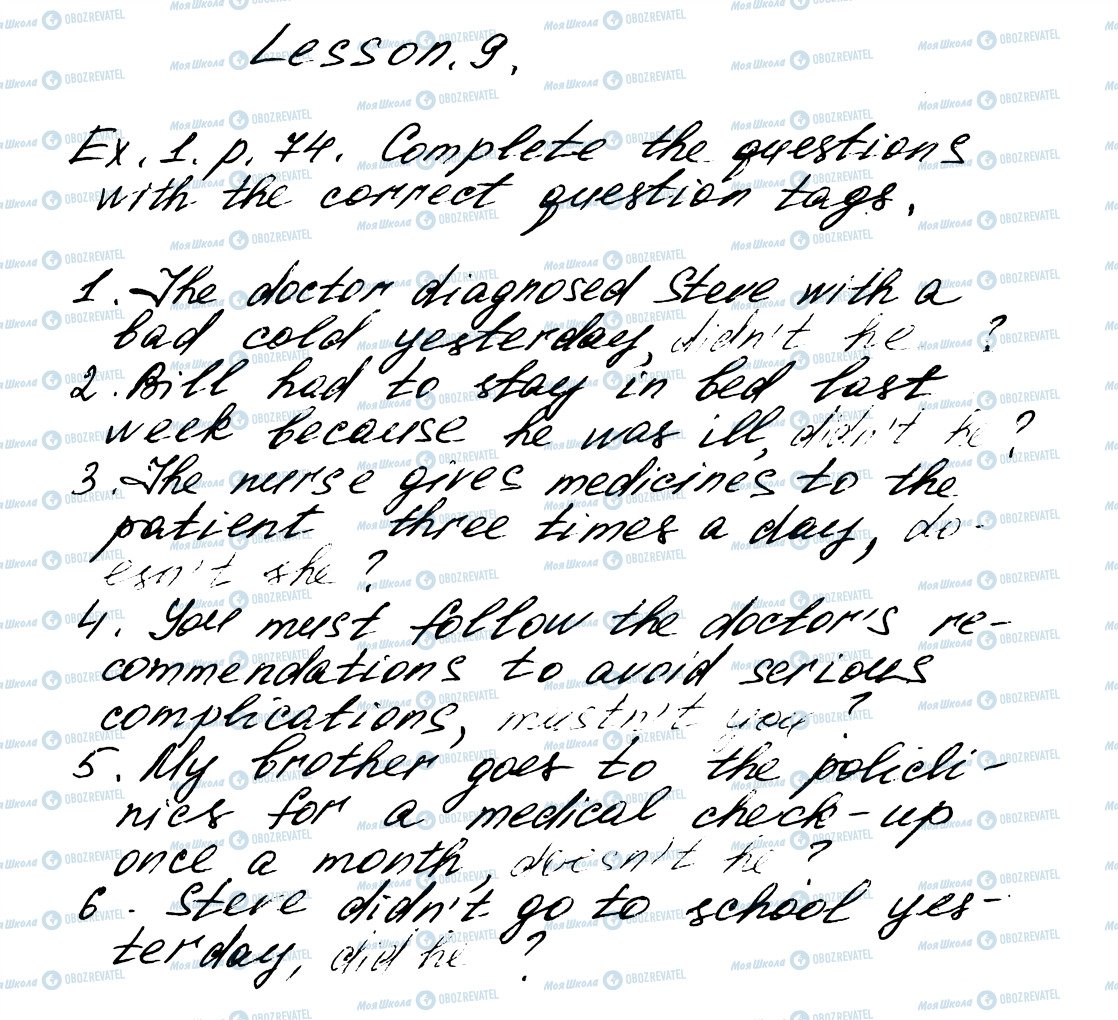 Lesson. 9.
Ex. 1. p. 74. Complete the questions
with the correct question tags.
1. The doctor diagnosed Steve with a
bad cold yesterday, didn't he ?
2. Bill had to stay in bed last
week because he was ill, didn't he ?
3. The nurse gives medicines to the
patient three times a day, do-
esn't she ?
4. You must follow the doctor's re-
commendations to avoid serious
complications, mustn't you ?
5. My brother goes to the policli-
nics for a medical check-up
once a month, doesn't he ?
6. Steve didn't go to school yes-
terday, did he ?